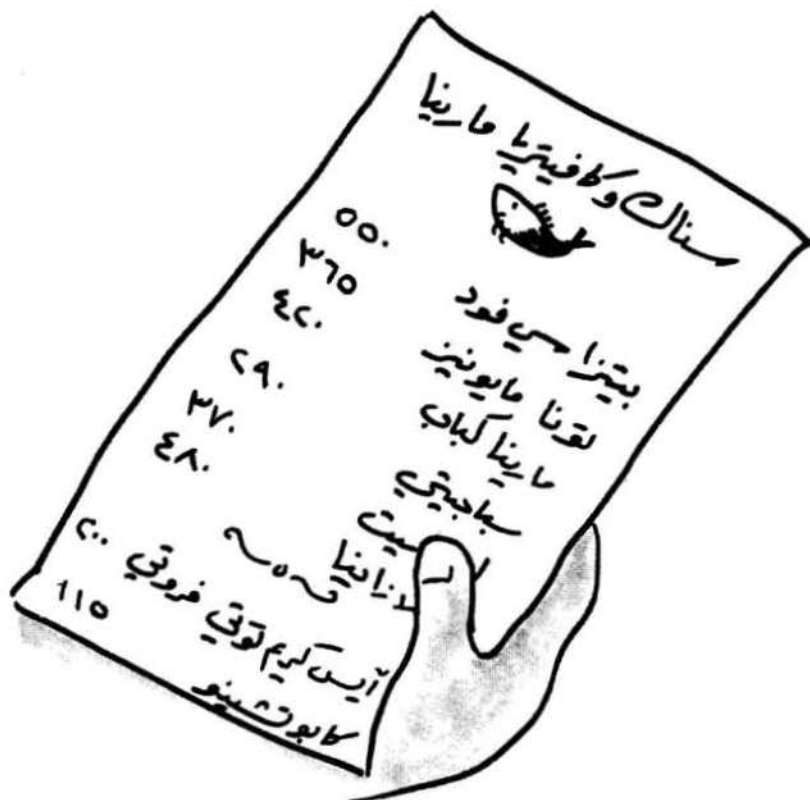 سناك وكافيتريا مارينا
بيتزا سي فود ٥٥٠
تونا مايونيز ٣٦٥
مارينا كباب ٤٢٠
سباجيتي ٢٩٠
٣٧٠
لازانيا ٤٨٠
آيس كريم توتي فروتي ٢٠٠
كابوتشينو ١١٥